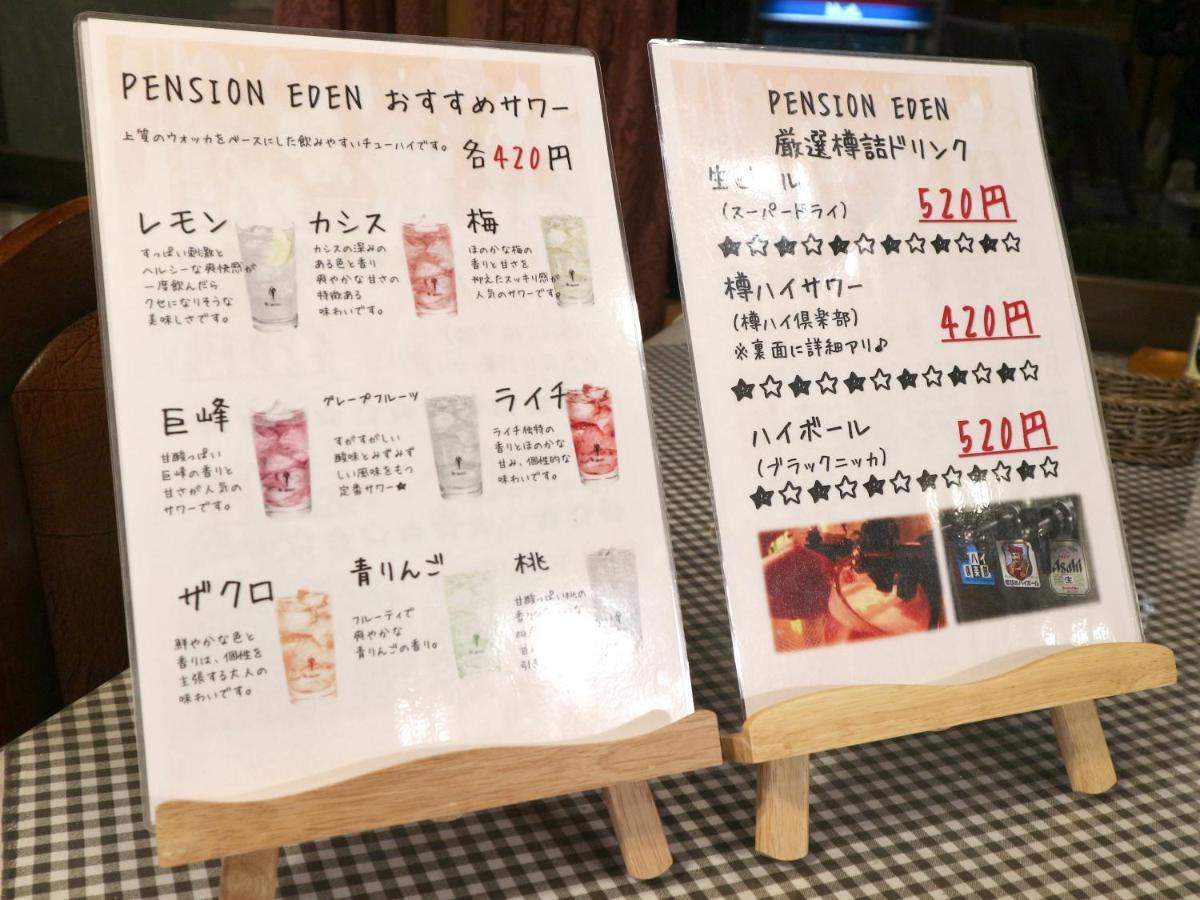 PENSION EDEN おすすめサワー
上質のウォッカをベースにした飲みやすいチューハイです。
各420円
レモン
すっぱい刺激と
ヘルシーな爽快感が
一度飲んだら
クセになりそうな
美味しさです。
カシス
カシスの深みの
ある色と香り
爽やかな甘さの
特徴ある
味わいです。
梅
ほのかな梅の
香りと甘さを
抑えたスッキリ感が
人気のサワーです。
巨峰
甘酸っぱい
巨峰の香りと
甘さが人気の
サワーです。
グレープフルーツ
すがすがしい
酸味とみずみず
しい風味をもつ
定番サワー★
ライチ
ライチ独特の
香りとほのかな
甘み、個性的な
味わいです。
ザクロ
鮮やかな色と
香りは、個性を
主張する大人の
味わいです。
青りんご
フルーティで
爽やかな
青りんごの香り。
桃
甘酸っぱい桃の
PENSION EDEN
厳選樽詰ドリンク
生ビール
(スーパードライ)
520円
★☆★☆★☆★☆★☆★☆
樽ハイサワー
(樽ハイ倶楽部)
420円
※裏面に詳細アリ♪
★☆★☆★☆★☆★☆★☆
ハイボール
(ブラックニッカ)
520円
★☆★☆★☆★☆★☆★☆
Asahi
生